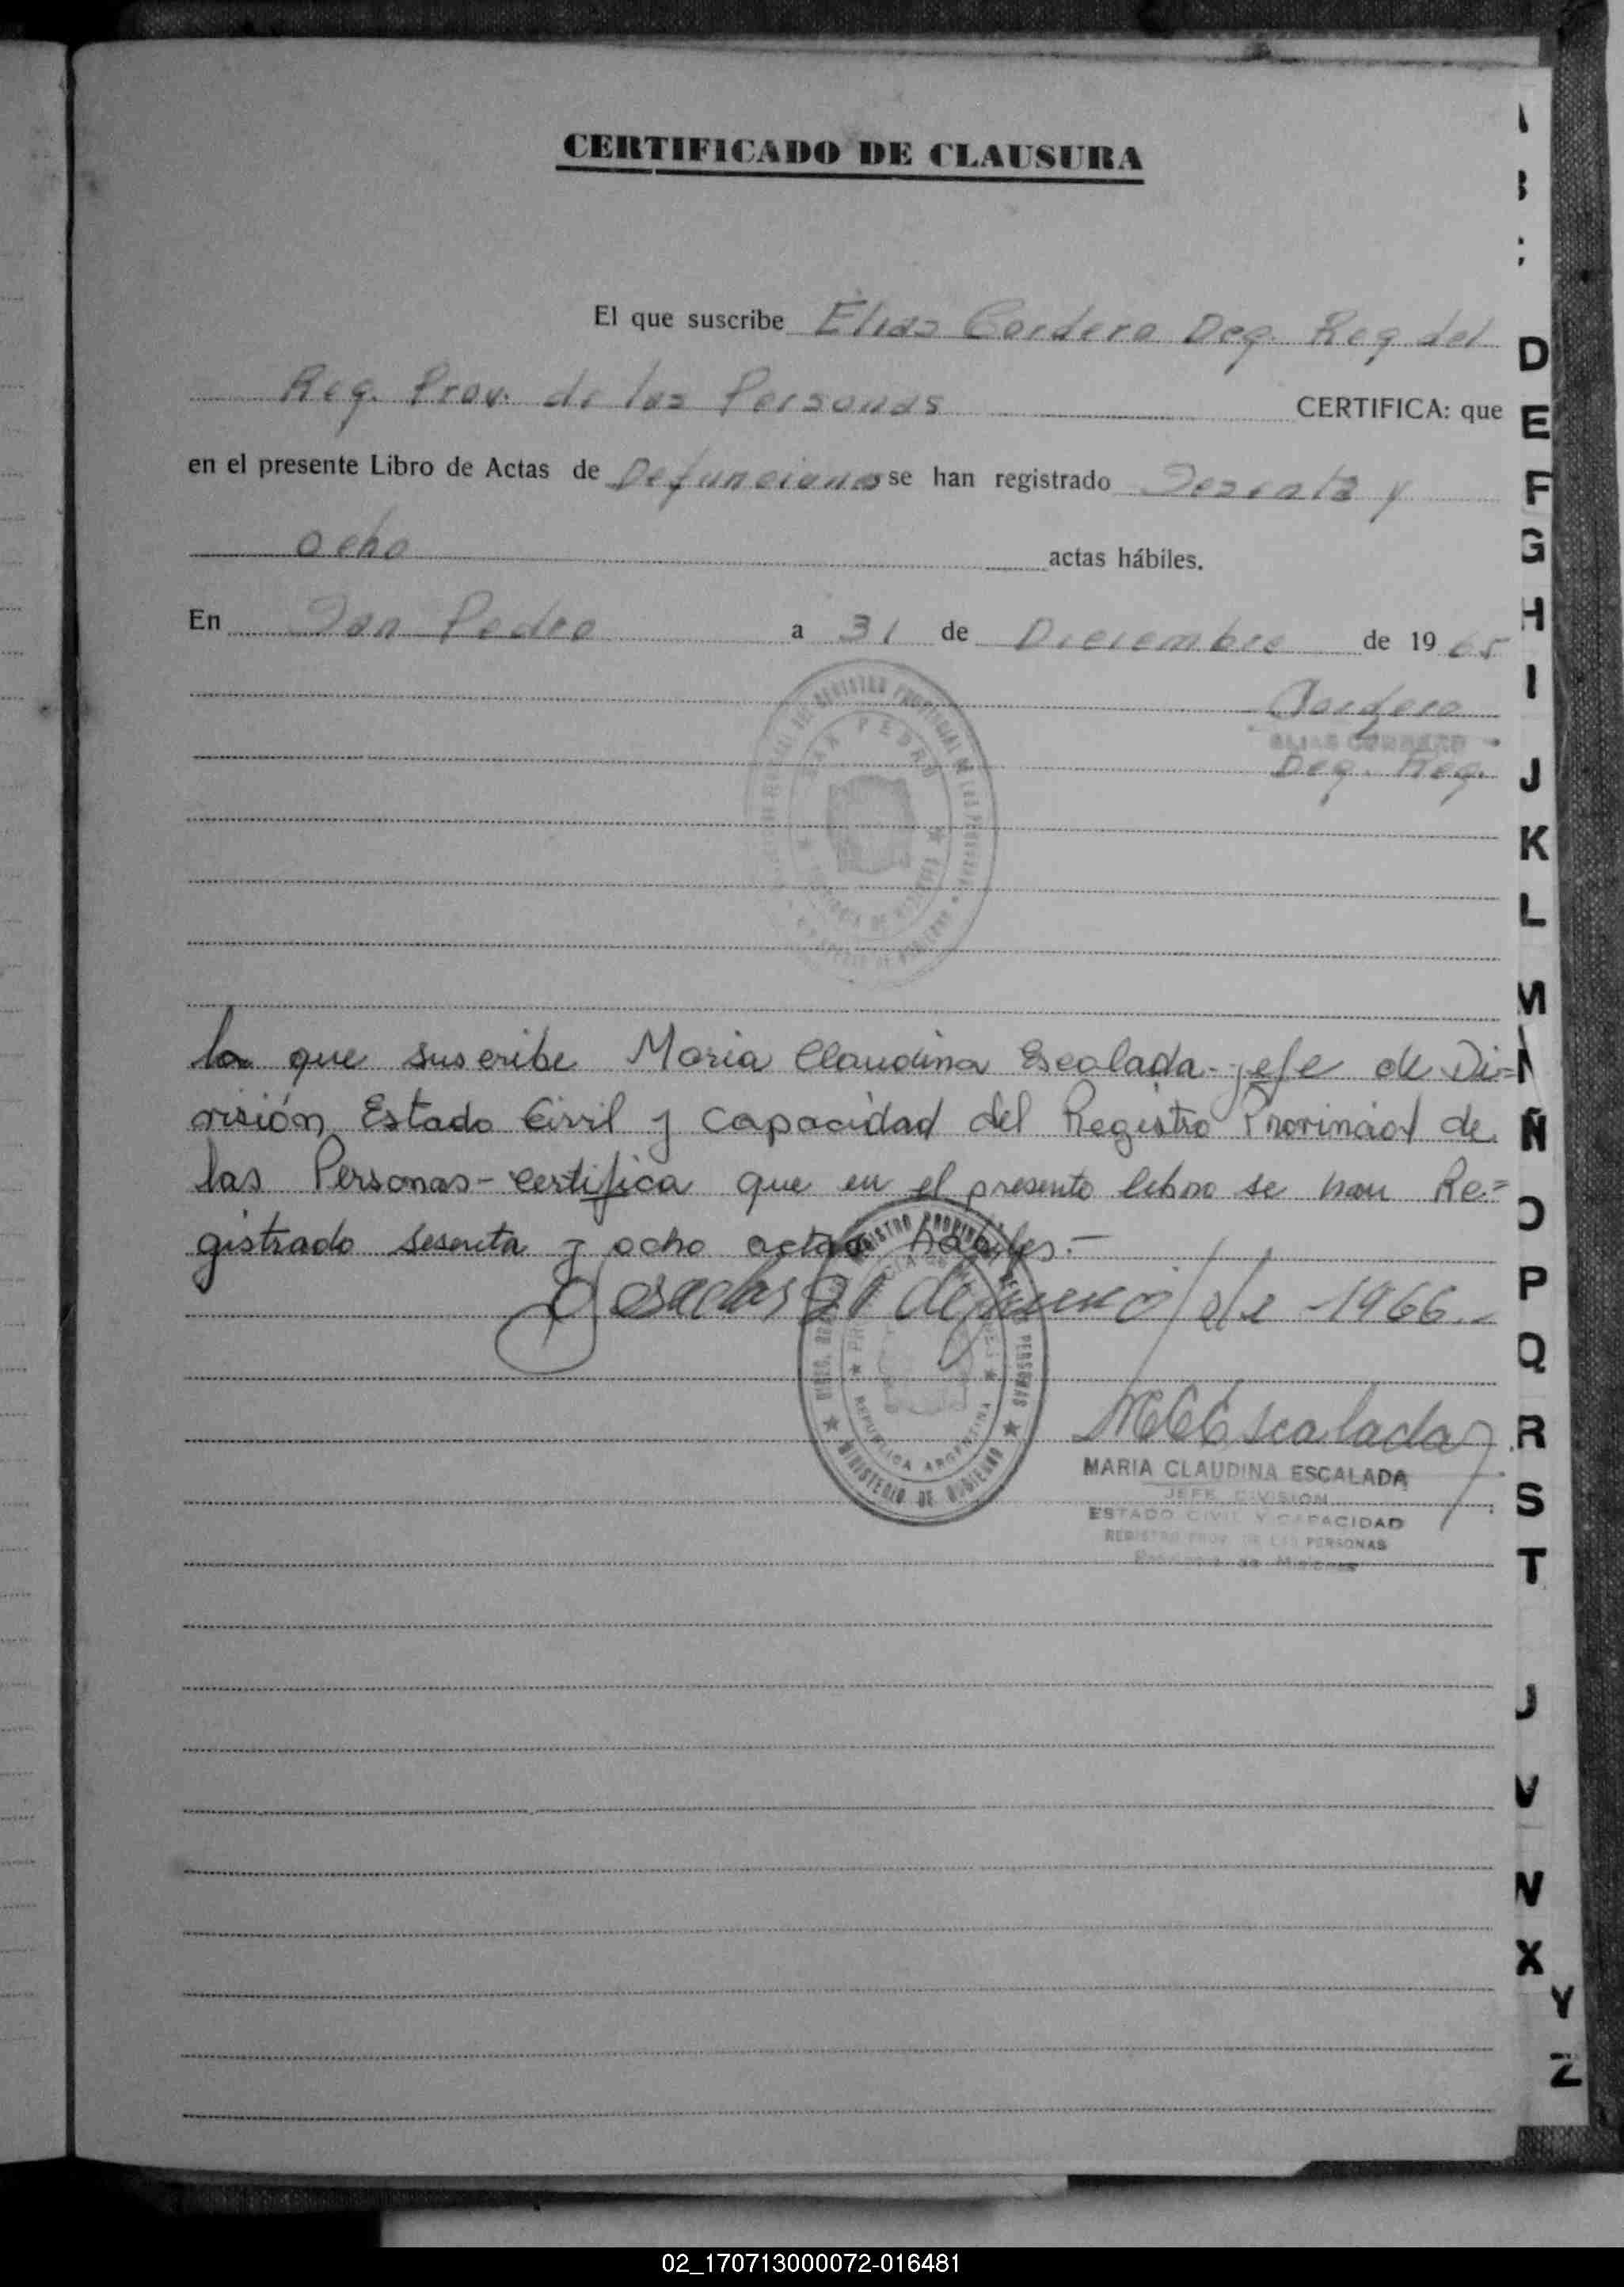 CERTIFICADO DE CLAUSURA
El que suscribe Elias Cordero Deg. Reg del
Reg. Prov. de las Personas CERTIFICA: que
en el presente Libro de Actas de Defunciones se han registrado Sesenta y
ocho actas hábiles.
En San Pedro a 31 de Diciembre de 19 65
Cordero
ELIAS CORDERO
Deg. Reg.
SAN PEDRO
la que suscribe Maria Claudina Escalada - jefe de Di=
visión Estado Civil y Capacidad del Registro Provincial de
las Personas - certifica que en el presente libro se han Re=
gistrado sesenta y ocho actas hábiles.-
Posadas 21 de enero de 1966.-
MCEscalada
MARIA CLAUDINA ESCALADA
JEFE DIVISION
ESTADO CIVIL Y CAPACIDAD
REGISTRO PROV. DE LAS PERSONAS
Provincia de Misiones
REPUBLICA ARGENTINA
MINISTERIO DE GOBIERNO
D
E
F
G
H
I
J
K
L
M
N
Ñ
O
P
Q
R
S
T
U
V
W
X
Y
Z
02_170713000072-016481